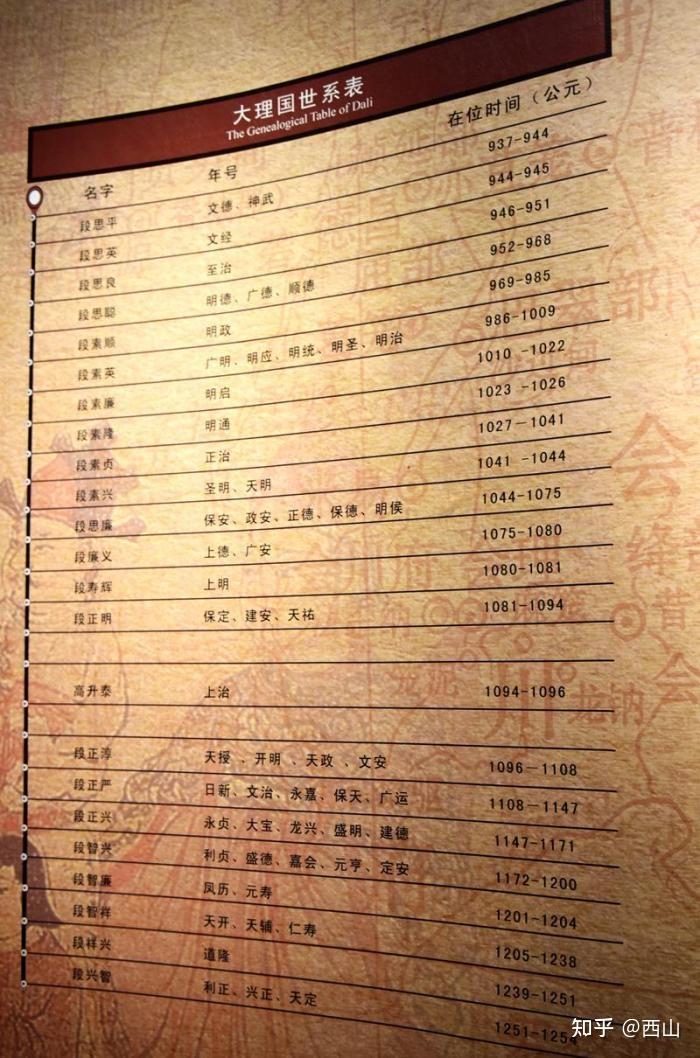 大理国世系表
The Genealogical Table of Dali
名字 年号 在位时间（公元）
段思平 文德、神武 937-944
段思英 文经 944-945
段思良 至治 946-951
段思聪 明德、广德、顺德 952-968
段素顺 明政 969-985
段素英 广明、明应、明统、明圣、明治 986-1009
段素廉 明启 1010 -1022
段素隆 明通 1023 -1026
段素贞 正治 1027-1041
段素兴 圣明、天明 1041 -1044
段思廉 保安、政安、正德、保德、明侯 1044-1075
段廉义 上德、广安 1075-1080
段寿辉 上明 1080-1081
段正明 保定、建安、天祐 1081-1094
高升泰 上治 1094-1096
段正淳 天授 、开明 、天政 、文安 1096-1108
段正严 日新、文治、永嘉、保天、广运 1108-1147
段正兴 永贞、大宝、龙兴、盛明、建德 1147-1171
段智兴 利贞、盛德、嘉会、元亨、定安 1172-1200
段智廉 凤历、元寿 1201-1204
段智祥 天开、天辅、仁寿 1205-1238
段祥兴 道隆 1239-1251
段兴智 利正、兴正、天定 1251-1254
知乎 @西山